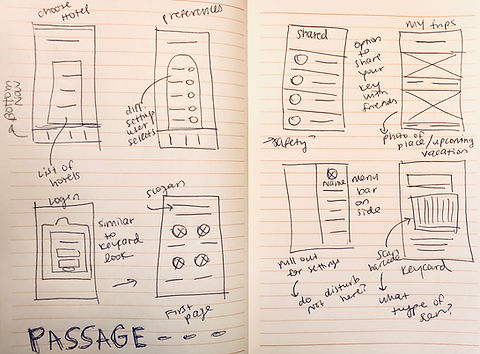 choose
Hotel
Bottom
Nav
List of
hotels
preferences
diff.
setup
user
selects
Login
Similar
to
keycard
look
Slogan
First
page
PASSAGE
Shared
option
to
share
your
key
with
friends
safety
my trips
photo of
place/upcoming
vacation
Name
menu
bar
on
side
Pull out
for settings
do not disturb
here?
scan
barcode
Keycard
what
type of
scan?